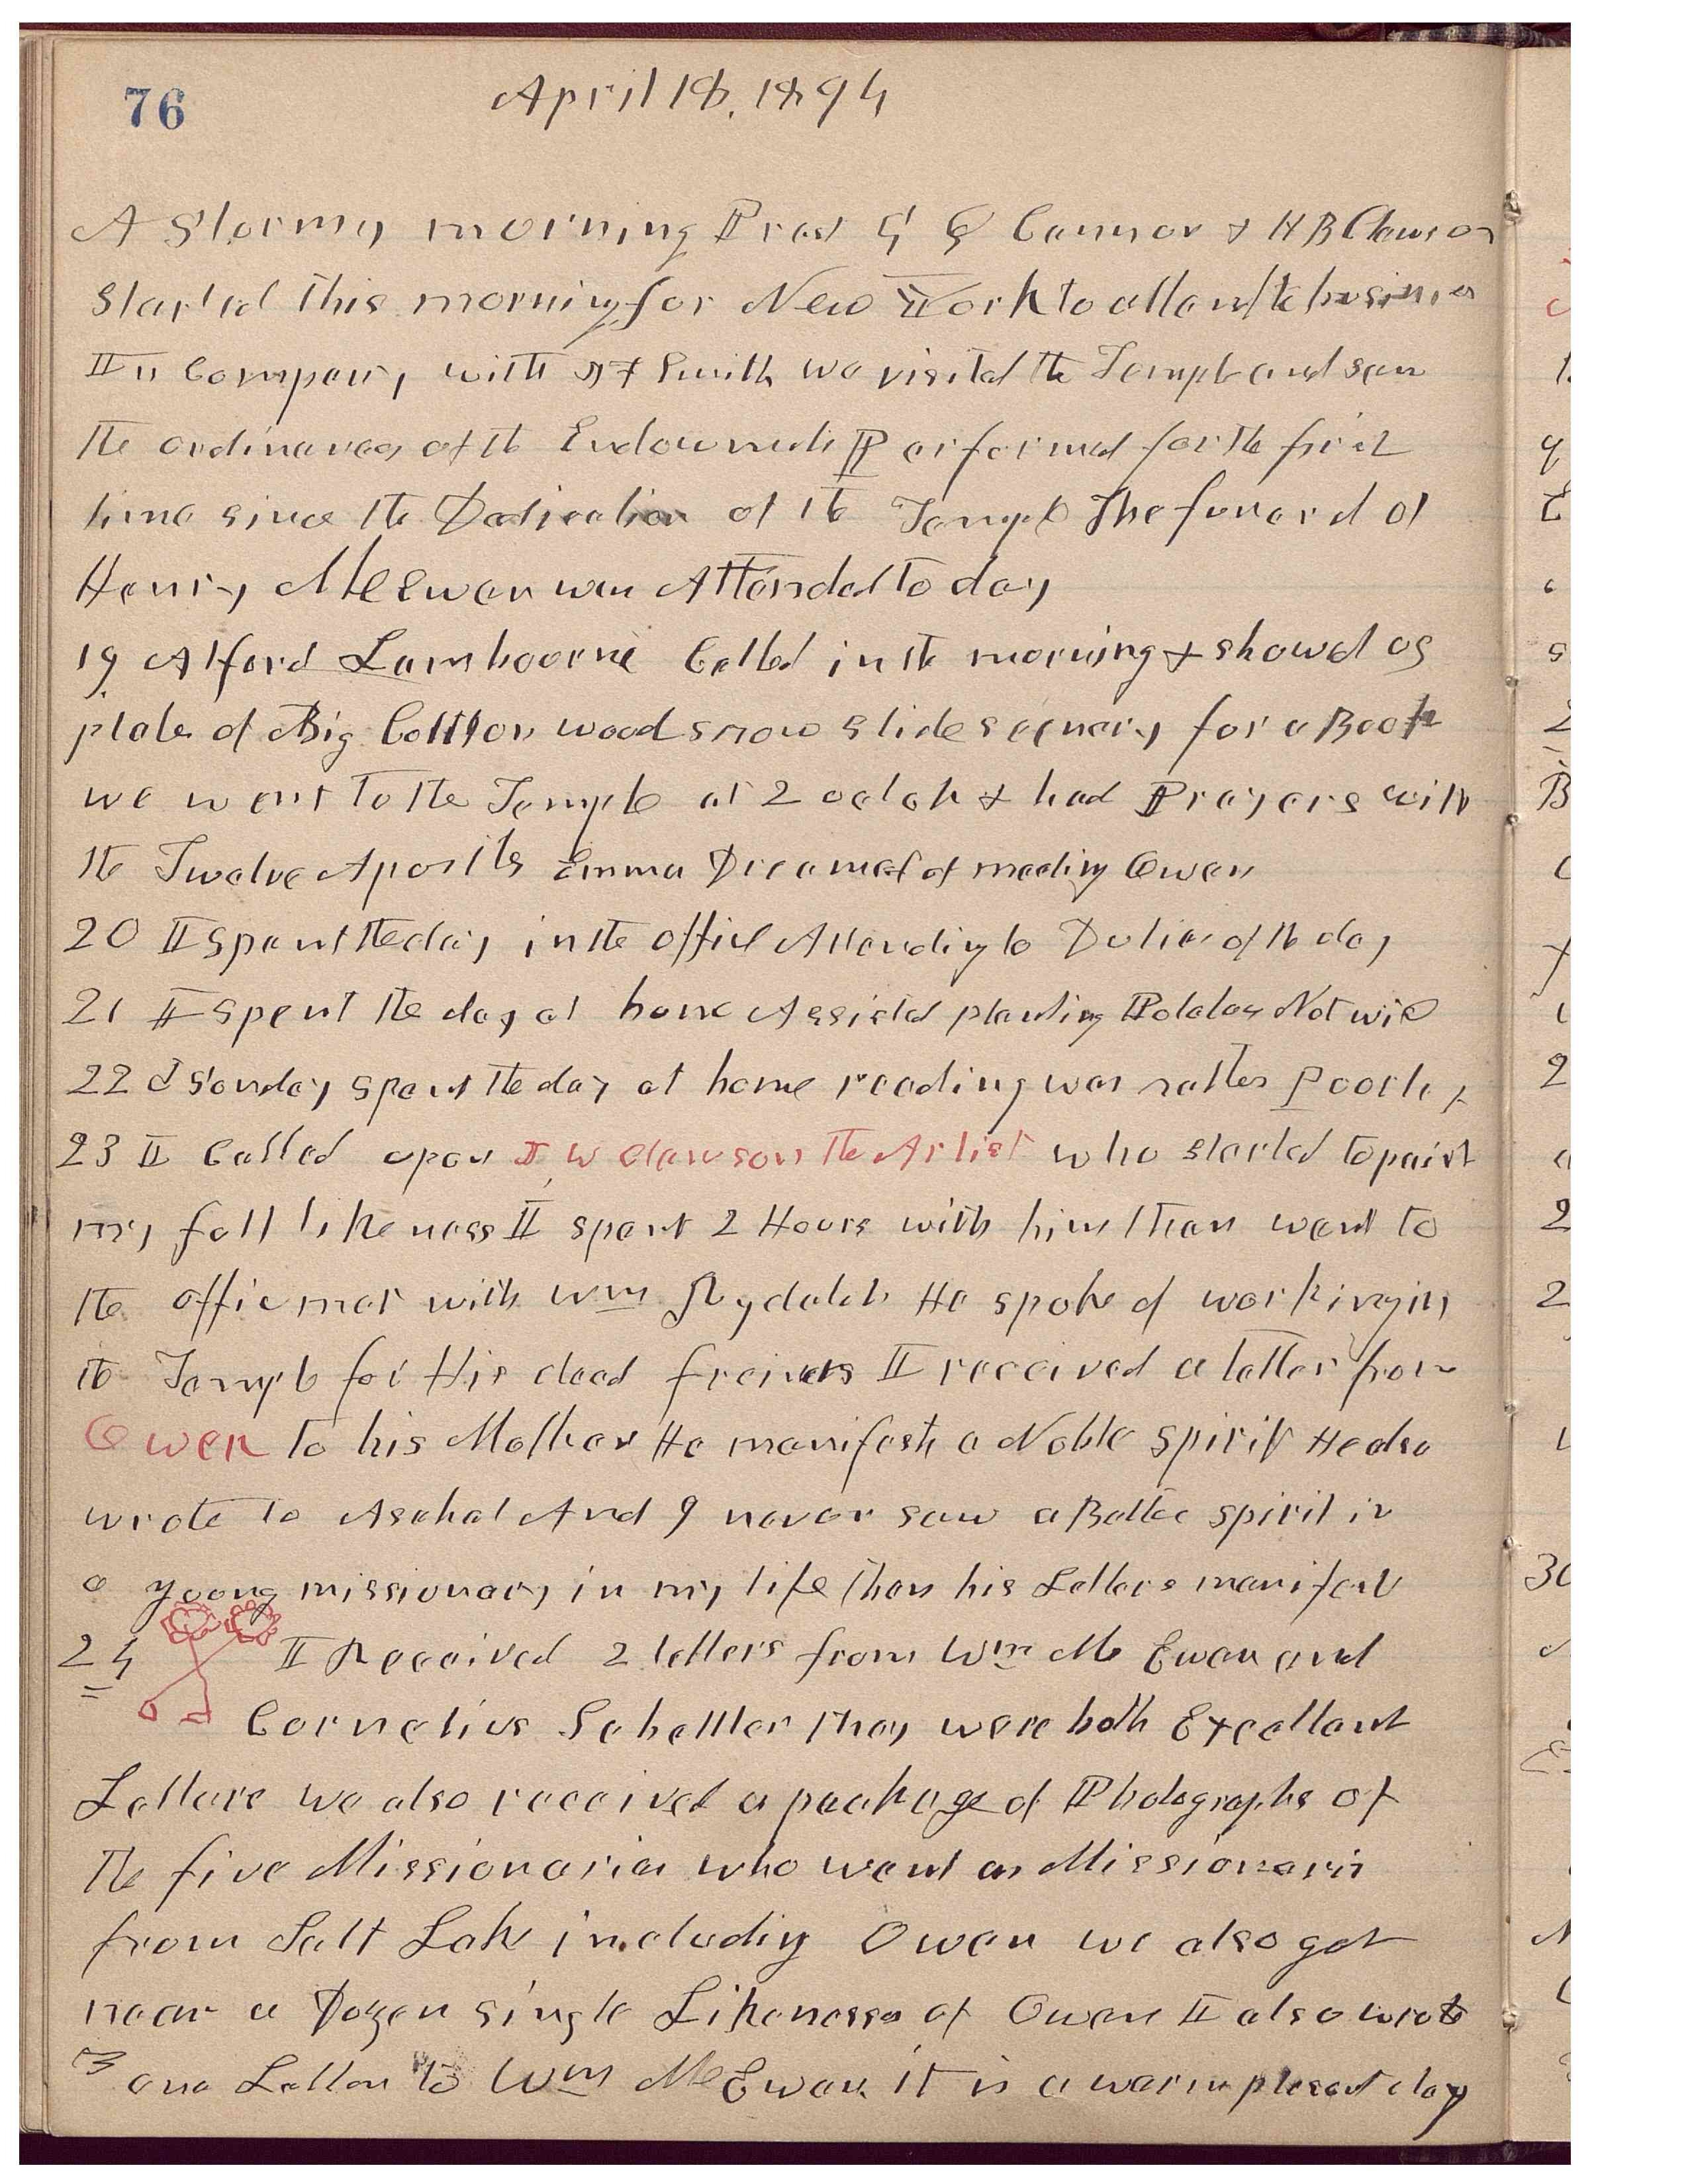 76
April 18, 1894
A Stormy morning Prest G Q Cannon & H B Clawson
started this morning for New York to attend to business
In Company with J F Smith we visited the Temple and saw
the ordinances of the Endowments Performed for the first
time since the Dedication of the Temple The funeral of
Henry McEwan was Attended to day
19 Alford Lambourne Called in the morning & showed us
plates of Big Cottonwood snow slide scenery for a Book
we went to the Temple at 2 oclok & had Prayers with
the Twelve Apostles Emma Dreamed of meeting Owen
20 I spent the day in the office Attending to Duties of the day
21 I spent the day at home Assisted planting Potatoes Not well
22 Sunday spent the day at home reading was rather Poorly
23 I Called upon J W Clawson the Artist who started to paint
my full likeness I spent 2 Hours with him then went to
the office met with Wm Rydalch He spoke of working in
the Temple for His dead freinds I received a letter from
Owen to his Mother He manifests a Noble spirit He also
wrote to Asahel And I never saw a Better spirit in
a young missionary in my life than his Letters manifest
24 I Received 2 letters from Wm McEwan and
Cornelius Schettler They were both Excellant
Letters we also received a package of Photographs of
the five Missionaries who went as Missionaries
from Salt Lake including Owen we also got
near a Dozen single Likenesses of Owen I also wrote
one Letter to Wm McEwan it is a warm plesant day